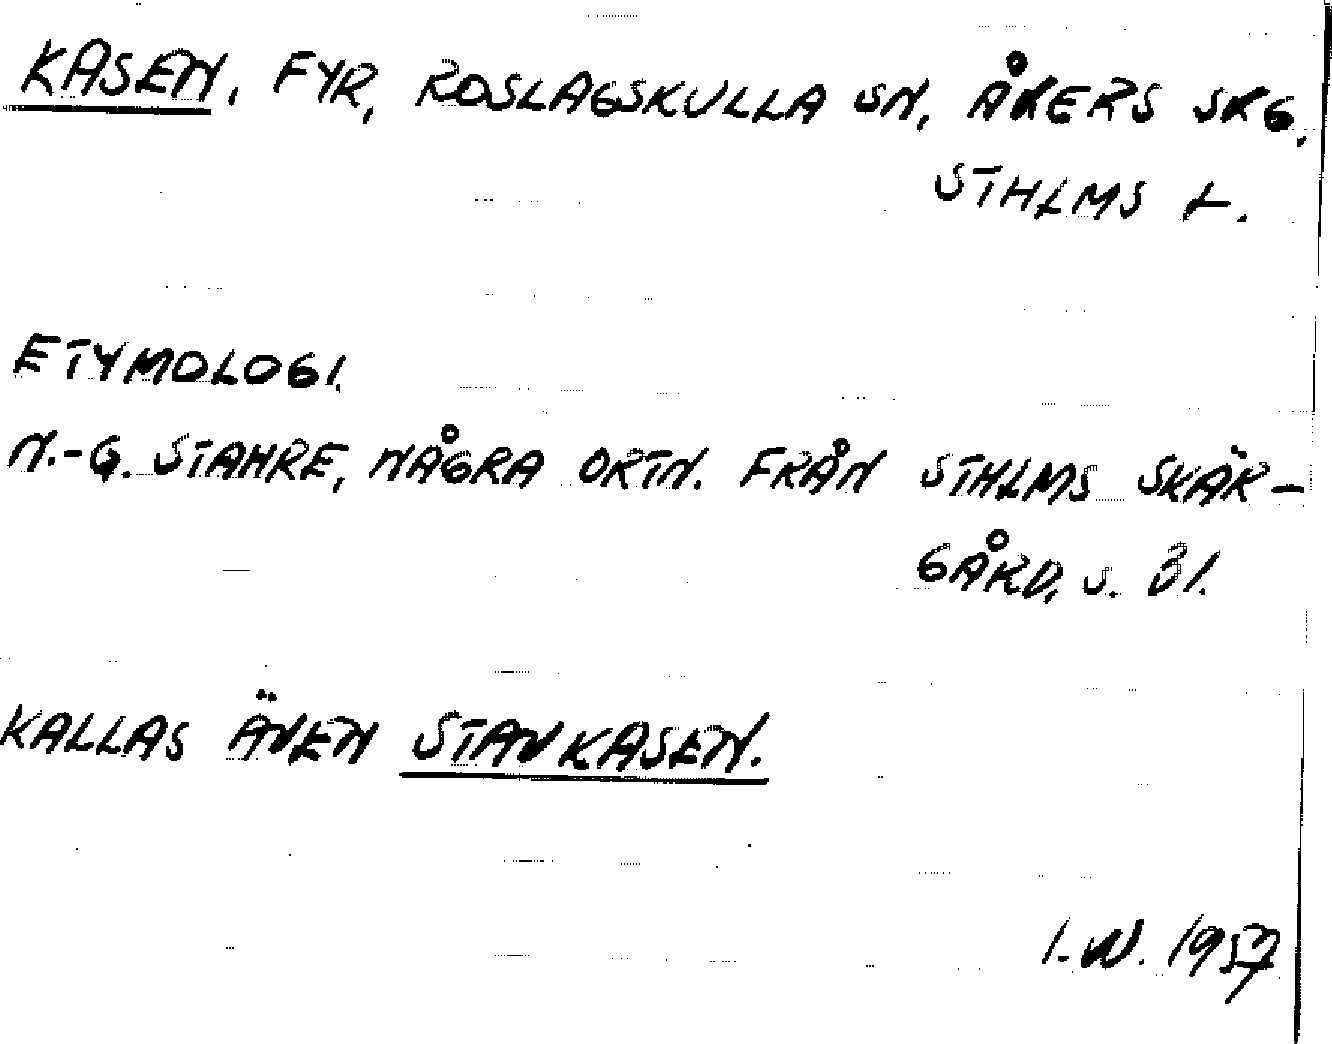 KASEN, FYR, ROSLAGSKULLA SN, ÅKERS SKG.
STHLMS L.
ETYMOLOGI.
N.-G. STAHRE, NÅGRA ORTN. FRÅN STHLMS SKÄR-
GÅRD, S. 31.
KALLAS ÄVEN STAVKASEN.
I.W. 1957